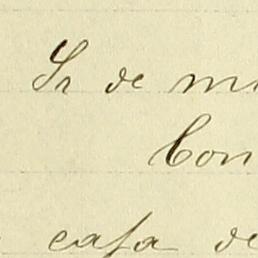 Sr de m
Con
casa de